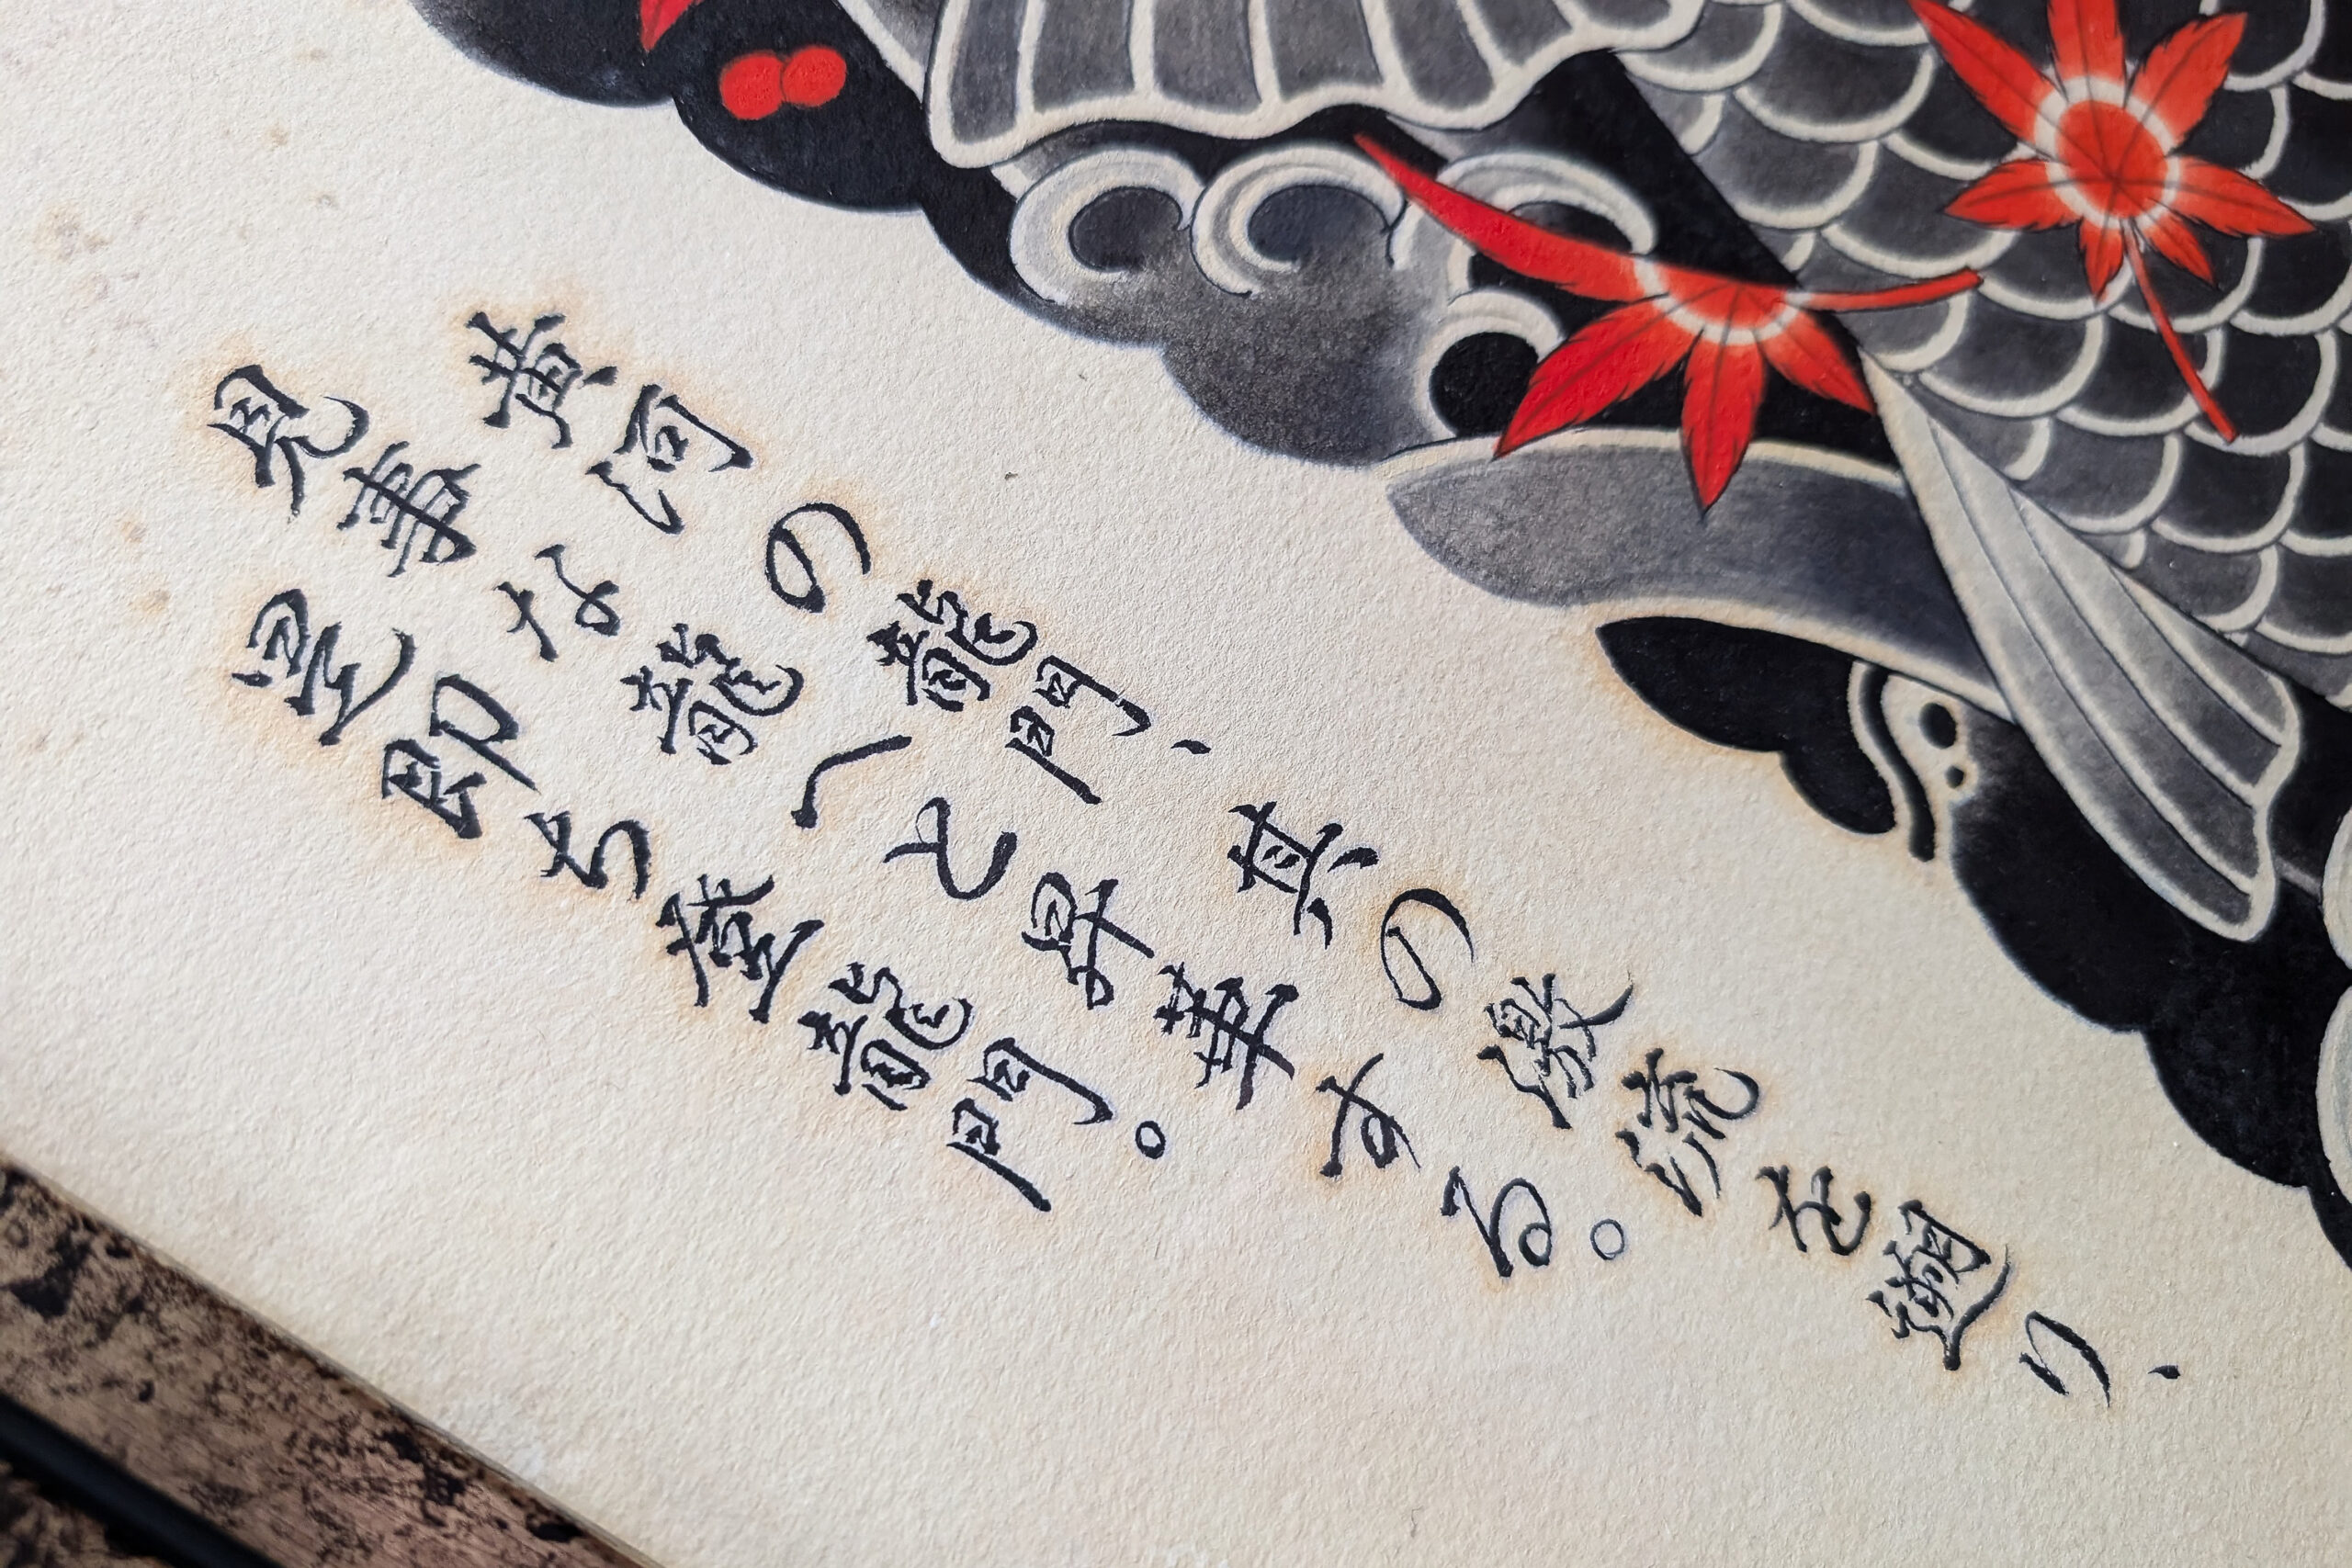 黄河の龍門、其の激流を遡り、
見事な龍へと昇華する。
是即ち登龍門。